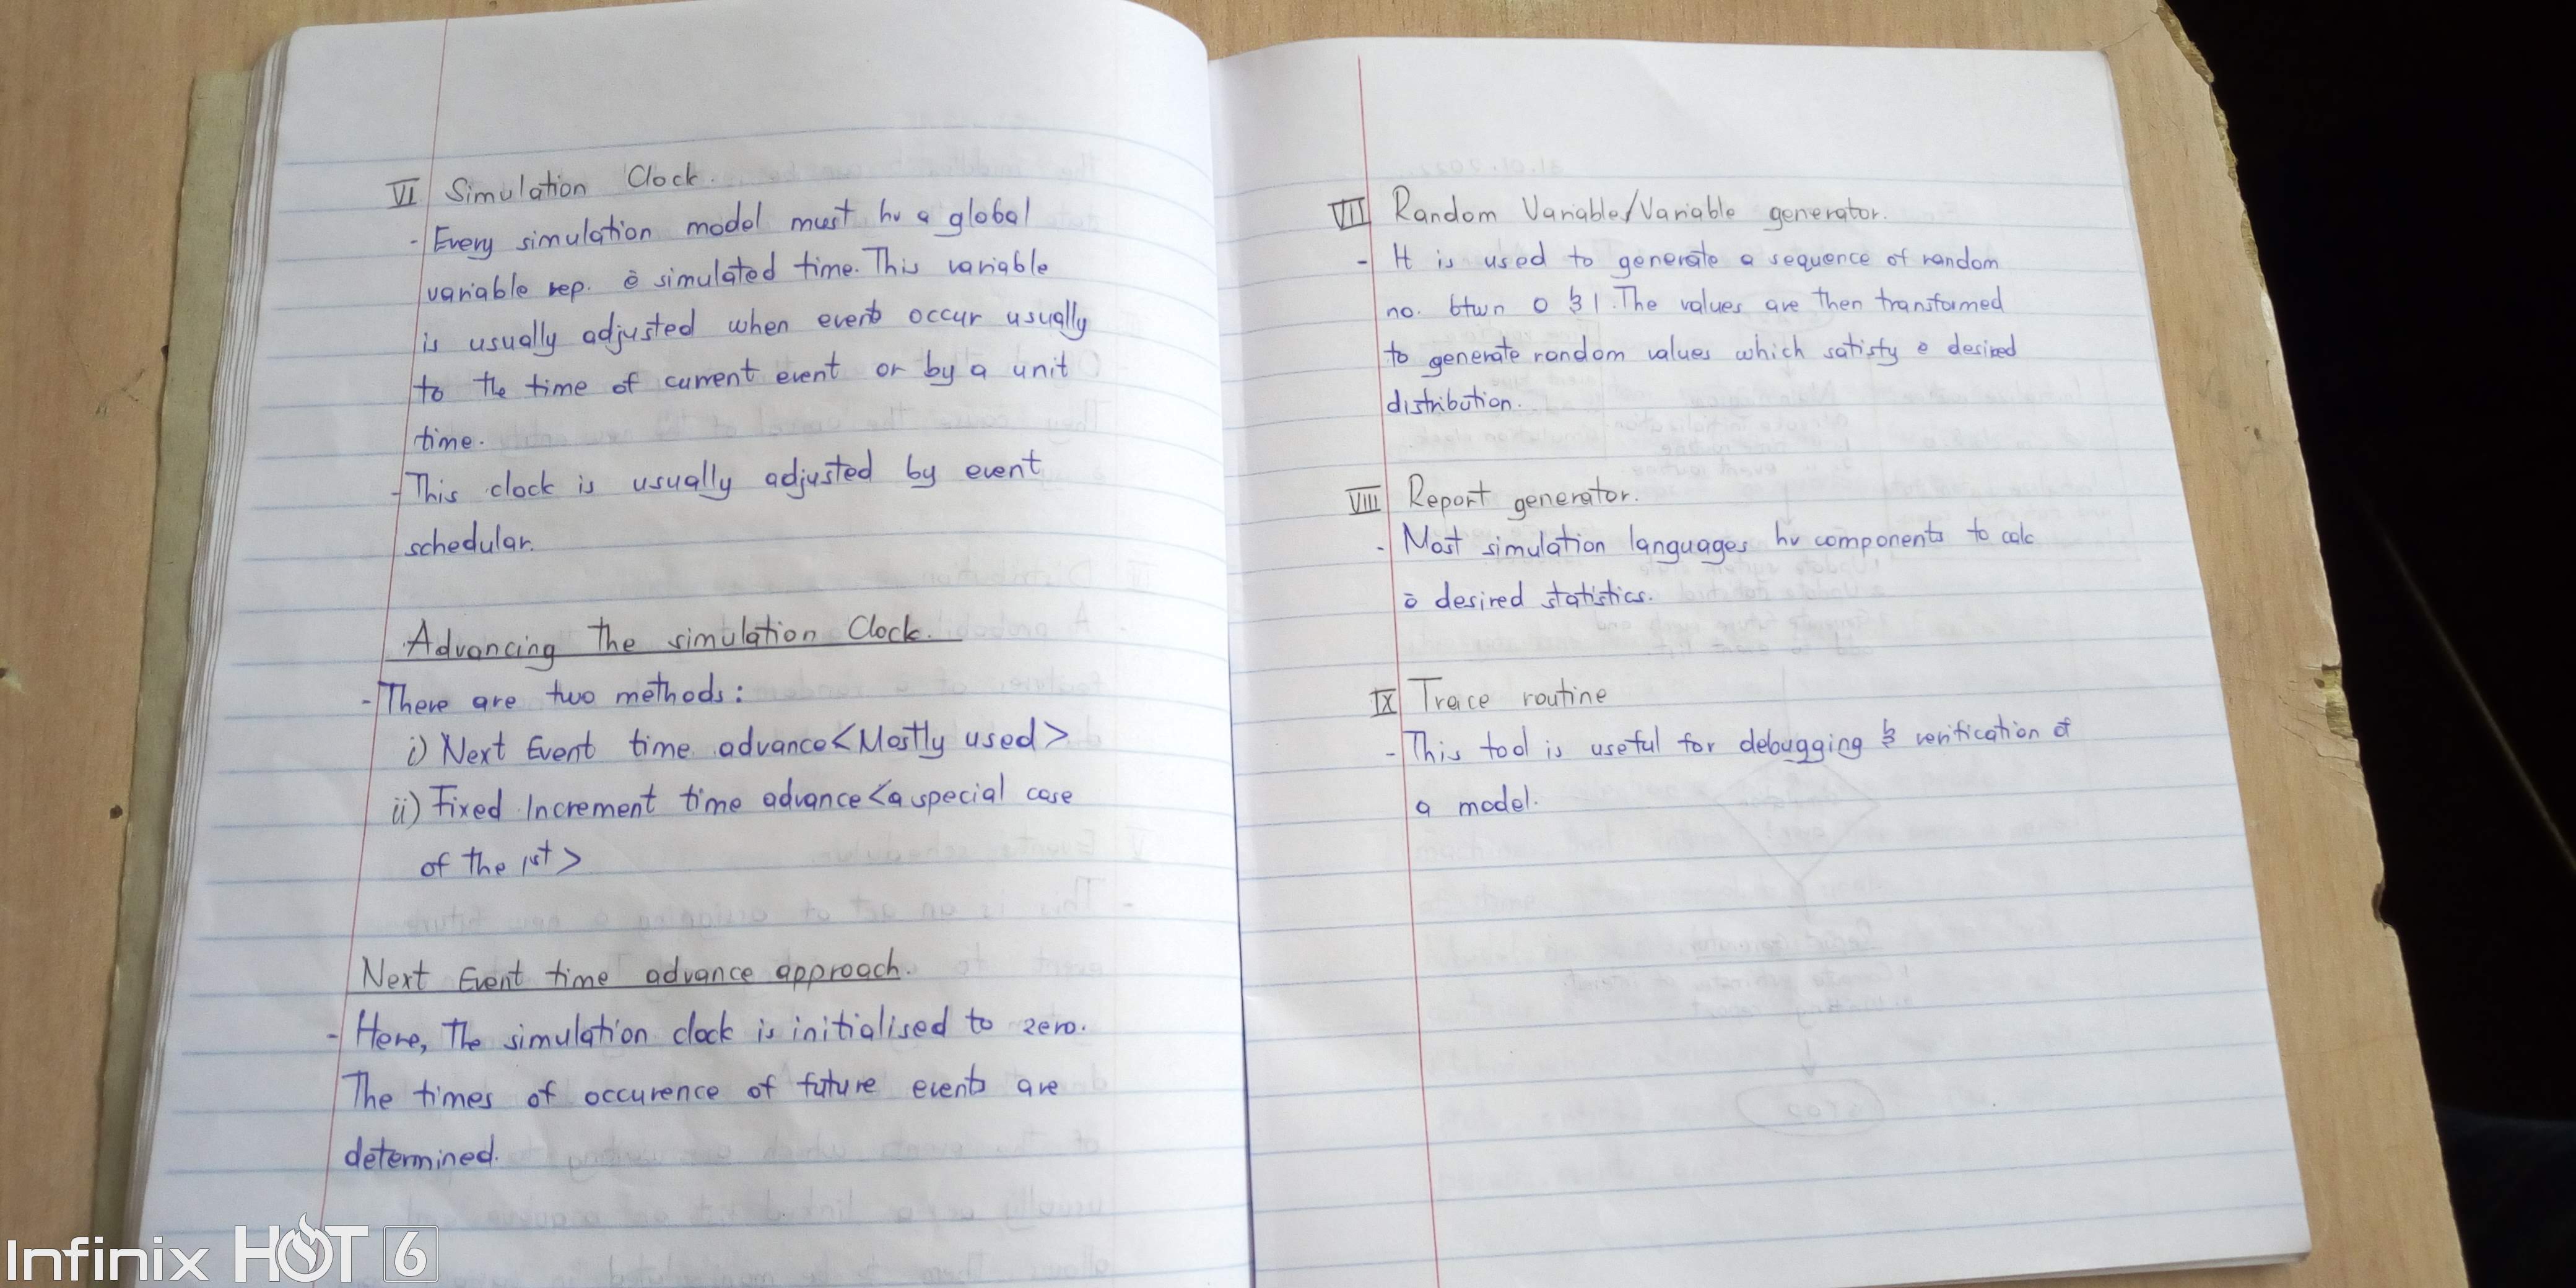 VI Simulation Clock.
- Every simulation model must hv a global
variable rep. ē simulated time. This variable
is usually adjusted when events occur usually
to the time of current event or by a unit
time.
- This clock is usually adjusted by event
schedular.
Advancing the simulation Clock.
- There are two methods:
i) Next Event time advance <Mostly used>
ii) Fixed Increment time advance <a special case
of the 1st>
Next Event time advance approach.
- Here, The simulation clock is initialised to zero.
The times of occurence of future events are
determined.
VII Random Variable/Variable generator.
- It is used to generate a sequence of random
no. btwn 0 & 1. The values are then transformed
to generate random values which satisfy e desired
distribution.
VIII Report generator.
- Most simulation languages hv components to calc
ē desired statistics.
IX Trace routine
- This tool is useful for debugging & verification of
a model.
Infinix HOT 6